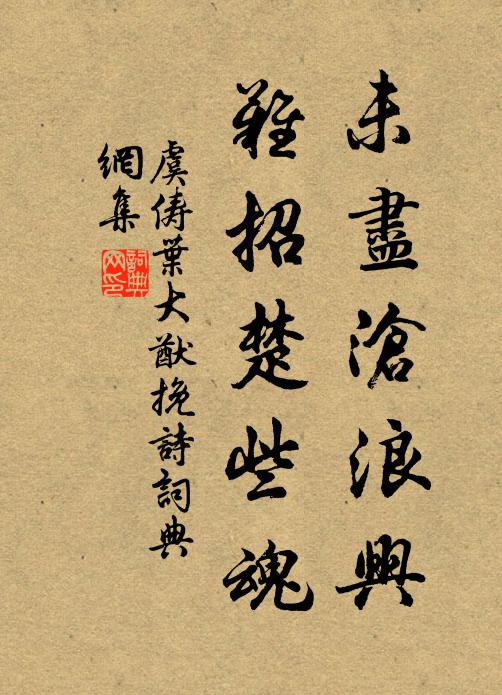 未盡滄浪興
難招楚些魂
虞儔葉大猷挽詩詞典
網集
詞典網印